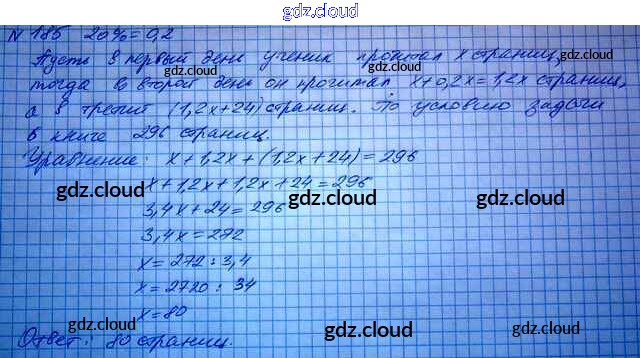 gdz.cloud
№ 185 20% = 0,2
Пусть в первый день ученик прочитал x страниц,
тогда во второй день он прочитал x+0,2x=1,2x страниц,
а в третий (1,2x+24) страниц. По условию задачи
в книге 296 страниц.
gdz.cloud
Уравнение: x+1,2x+(1,2x+24)=296
x+1,2x+1,2x+24=296
gdz.cloud
3,4x+24=296
gdz.cloud
gdz.cloud
3,4x=272
x=272:3,4
x=2720:34
x=80
gdz.cloud
Ответ: 80 страниц.
gdz.cloud
gdz.cloud